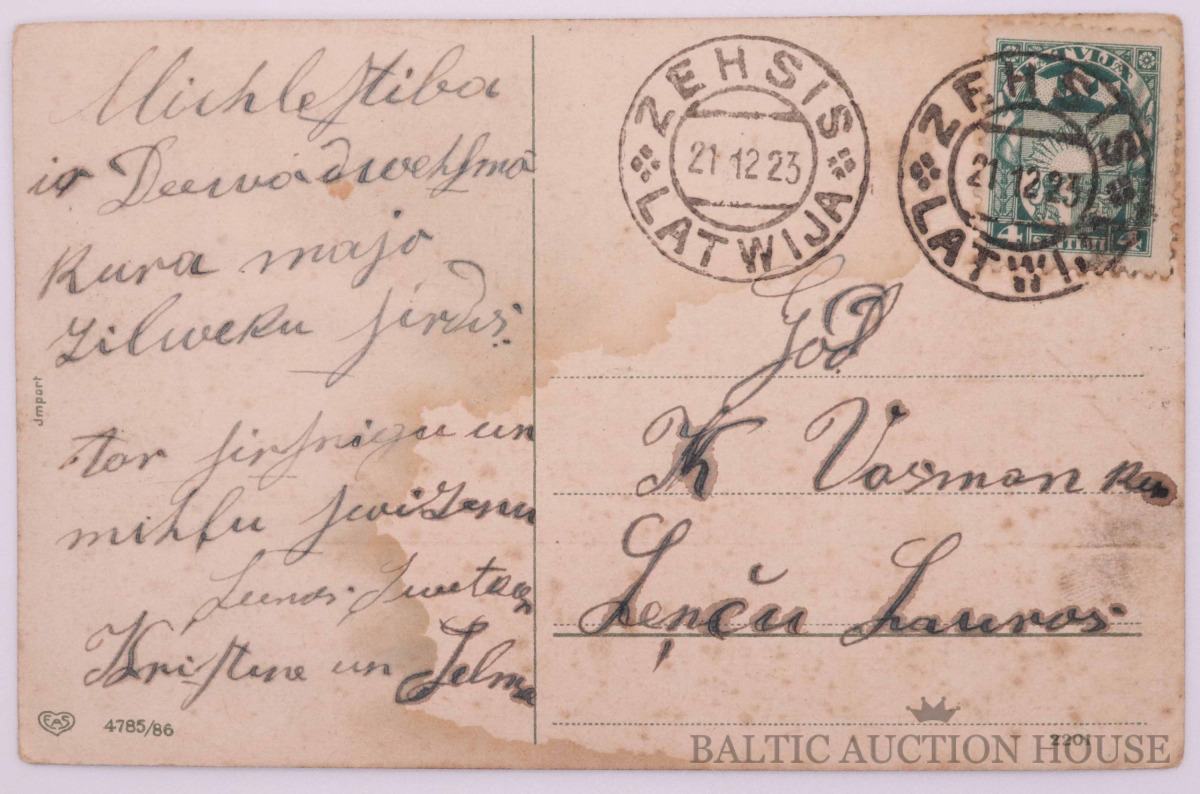 Mihlestiba
ir Deewa dwehsma
kura majo
zilweku sirdis.
tor sirsnigu un
mihļu sweizenu
Kristine un Selma
Import
EAS
4785/86
ZEHSIS
21 12 23
LATWIJA
ZEHSIS
21 12 23
LATWIJA
LATVIJA
4 4
God
K Vasman kun
Leņču Lauros
2201
BALTIC AUCTION HOUSE